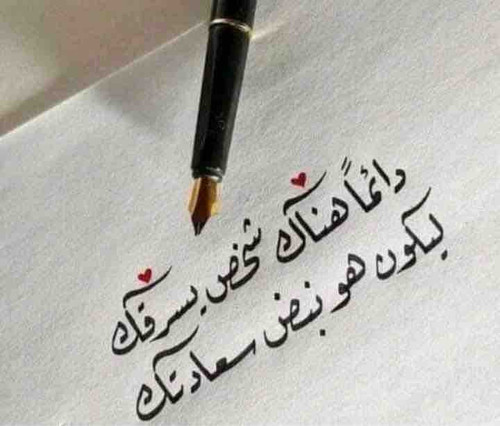 دائماً هناك شخص يسرقك
ليكون هو نبض سعادتك